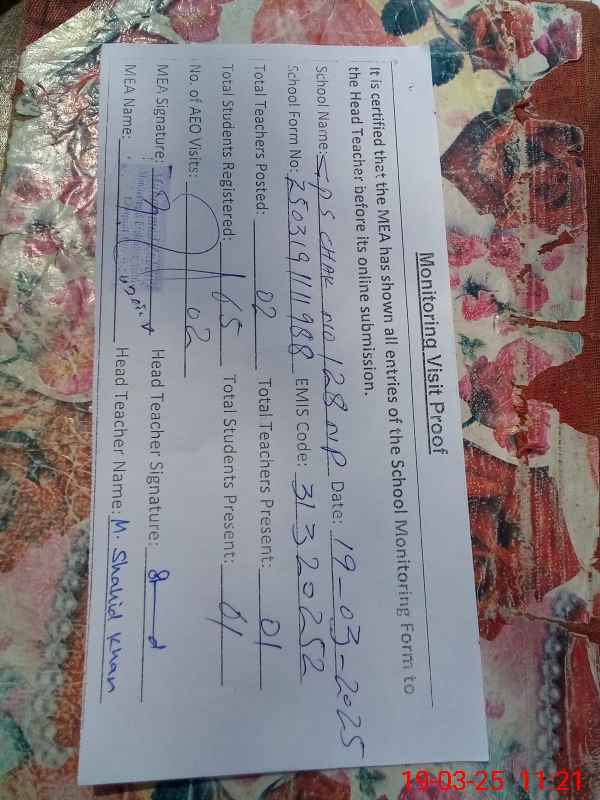 Monitoring Visit Proof
It is certified that the MEA has shown all entries of the School Monitoring Form to
the Head Teacher before its online submission.
School Name: GPS CHAK NO 128 NP Date: 19-03-2025
School Form No: EMIS Code: 31320252
Total Teachers Posted: 02 Total Teachers Present: 01
Total Students Registered: 165 Total Students Present: 61
No. of AEO Visits: 02
MEA Signature: Head Teacher Signature:
MEA Name: Head Teacher Name: M. Shahid Khan
19-03-25 11:21